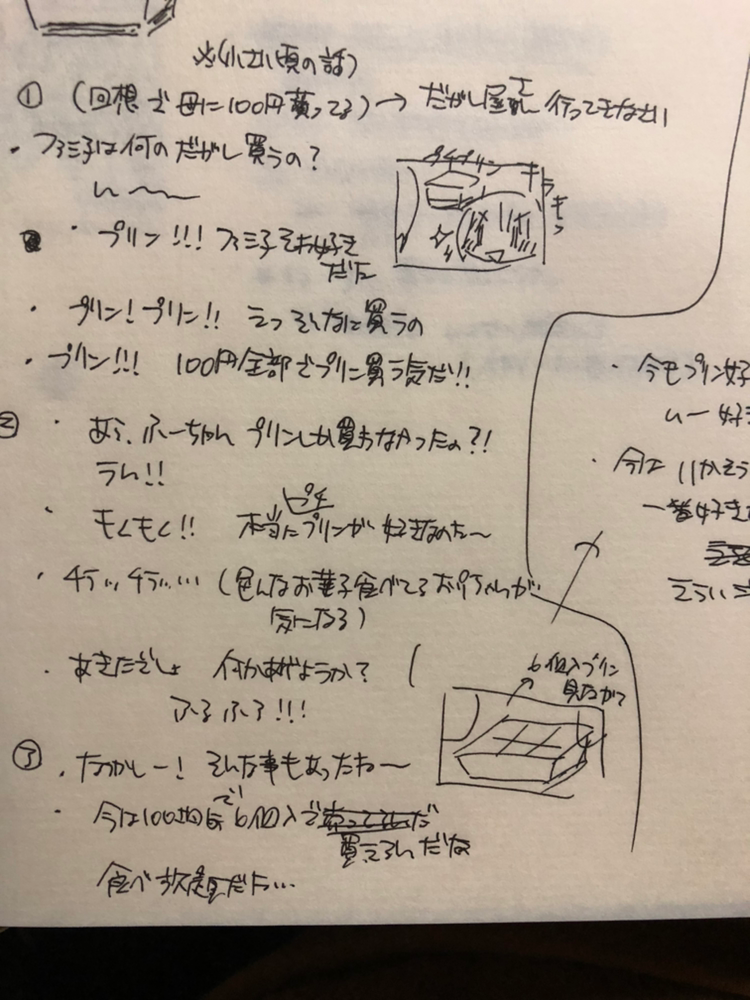 ※(小さい頃の話)
① (回想で母に100円貰ってる)→ だがし屋さん行ってきなさい
・ファミ子は何のだがし買うの?
ん〜〜
プチプリン
キラキラ
・プリン!!! ファミ子それ好きだな
・プリン!プリン!! えっ そんなに買うの
・プリン!!! 100円全部でプリン買う気だ!!
② ・あら、ふーちゃん プリンしか買わなかったの?!
うん!!
・もぐもぐ!! 本当にプリンが 好きなのね〜
プチ
・チラッ チラッ… (色んなお菓子食べてる お兄ちゃんが
気になる)
・あきたでしょ 何かあげようか? (
ふるふる!!!
6個入プリン
見ながら
③ ・なつかしー! そんな事もあったね〜
・今は100均でも 6個入で
買えるんだな
食べ放題だな…
・今もプリン好
んー 好き
・今は
一番好き